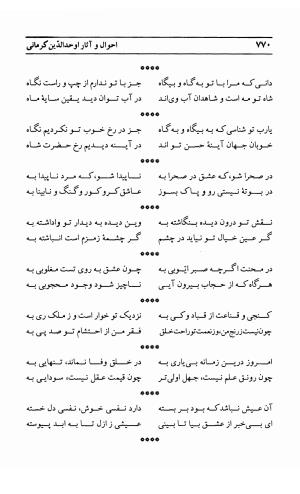 ۷۷۰ احوال و آثار اوحدالدّین کرمانی
****
دانی که مرا با تو به گاه و بیگاه جز با تو ندارم از چپ و راست نگاه
شاه تو مه است و شاهدان آب وی‌اند در آب توان دید یقین سایهٔ ماه
****
یارب تو شناسی که به بیگاه و به گاه جز در رخ خوب تو نکردیم نگاه
خوبان جهان آینهٔ حسن تو اند در آینه دیدیم رخ حضرت شاه
****
در صحرا شو، که عشق در صحرا به ناپیدا شو، کـه مرد ناپیدا به
در بوتهٔ نیستی رو و پاک بسوز عاشق کر و کور و گنگ و نابینا به
****
نقش تو درون دیده بنگاشته به وین دیده به دیدار تو واداشته به
گر عین خیال تو نیاید در چشم گر چشمهٔ زمزم است انباشته به
****
در محنت اگرچه صبر ایّوبی به چون عشق به روی تست مغلوبی به
هرگاه که از حجاب بیرون آیی ناچیز شود وجود محجوبی به
****
کنجی و قناعت از قباد و کی به نزدیک تو خوار است و ز ملک ری به
چون نیست ز رنج من و ز نعمت تو راحت خلق فقر من از احتشام تو صد پی به
****
امروز درین زمانه بی‌یاری به در خلق وفا نماند، تنهایی به
چون رونق علم نیست، جهل اولی‌تر چون قیمت عقل نیست، سودایی به
****
آن عیش نباشد که بود بر بسته دارد نفسی خوش، نفسی دل خسته
ای بی‌خبر از عشق بیا تا بینی عیشی ز ازل تا به ابد پیوسته
****